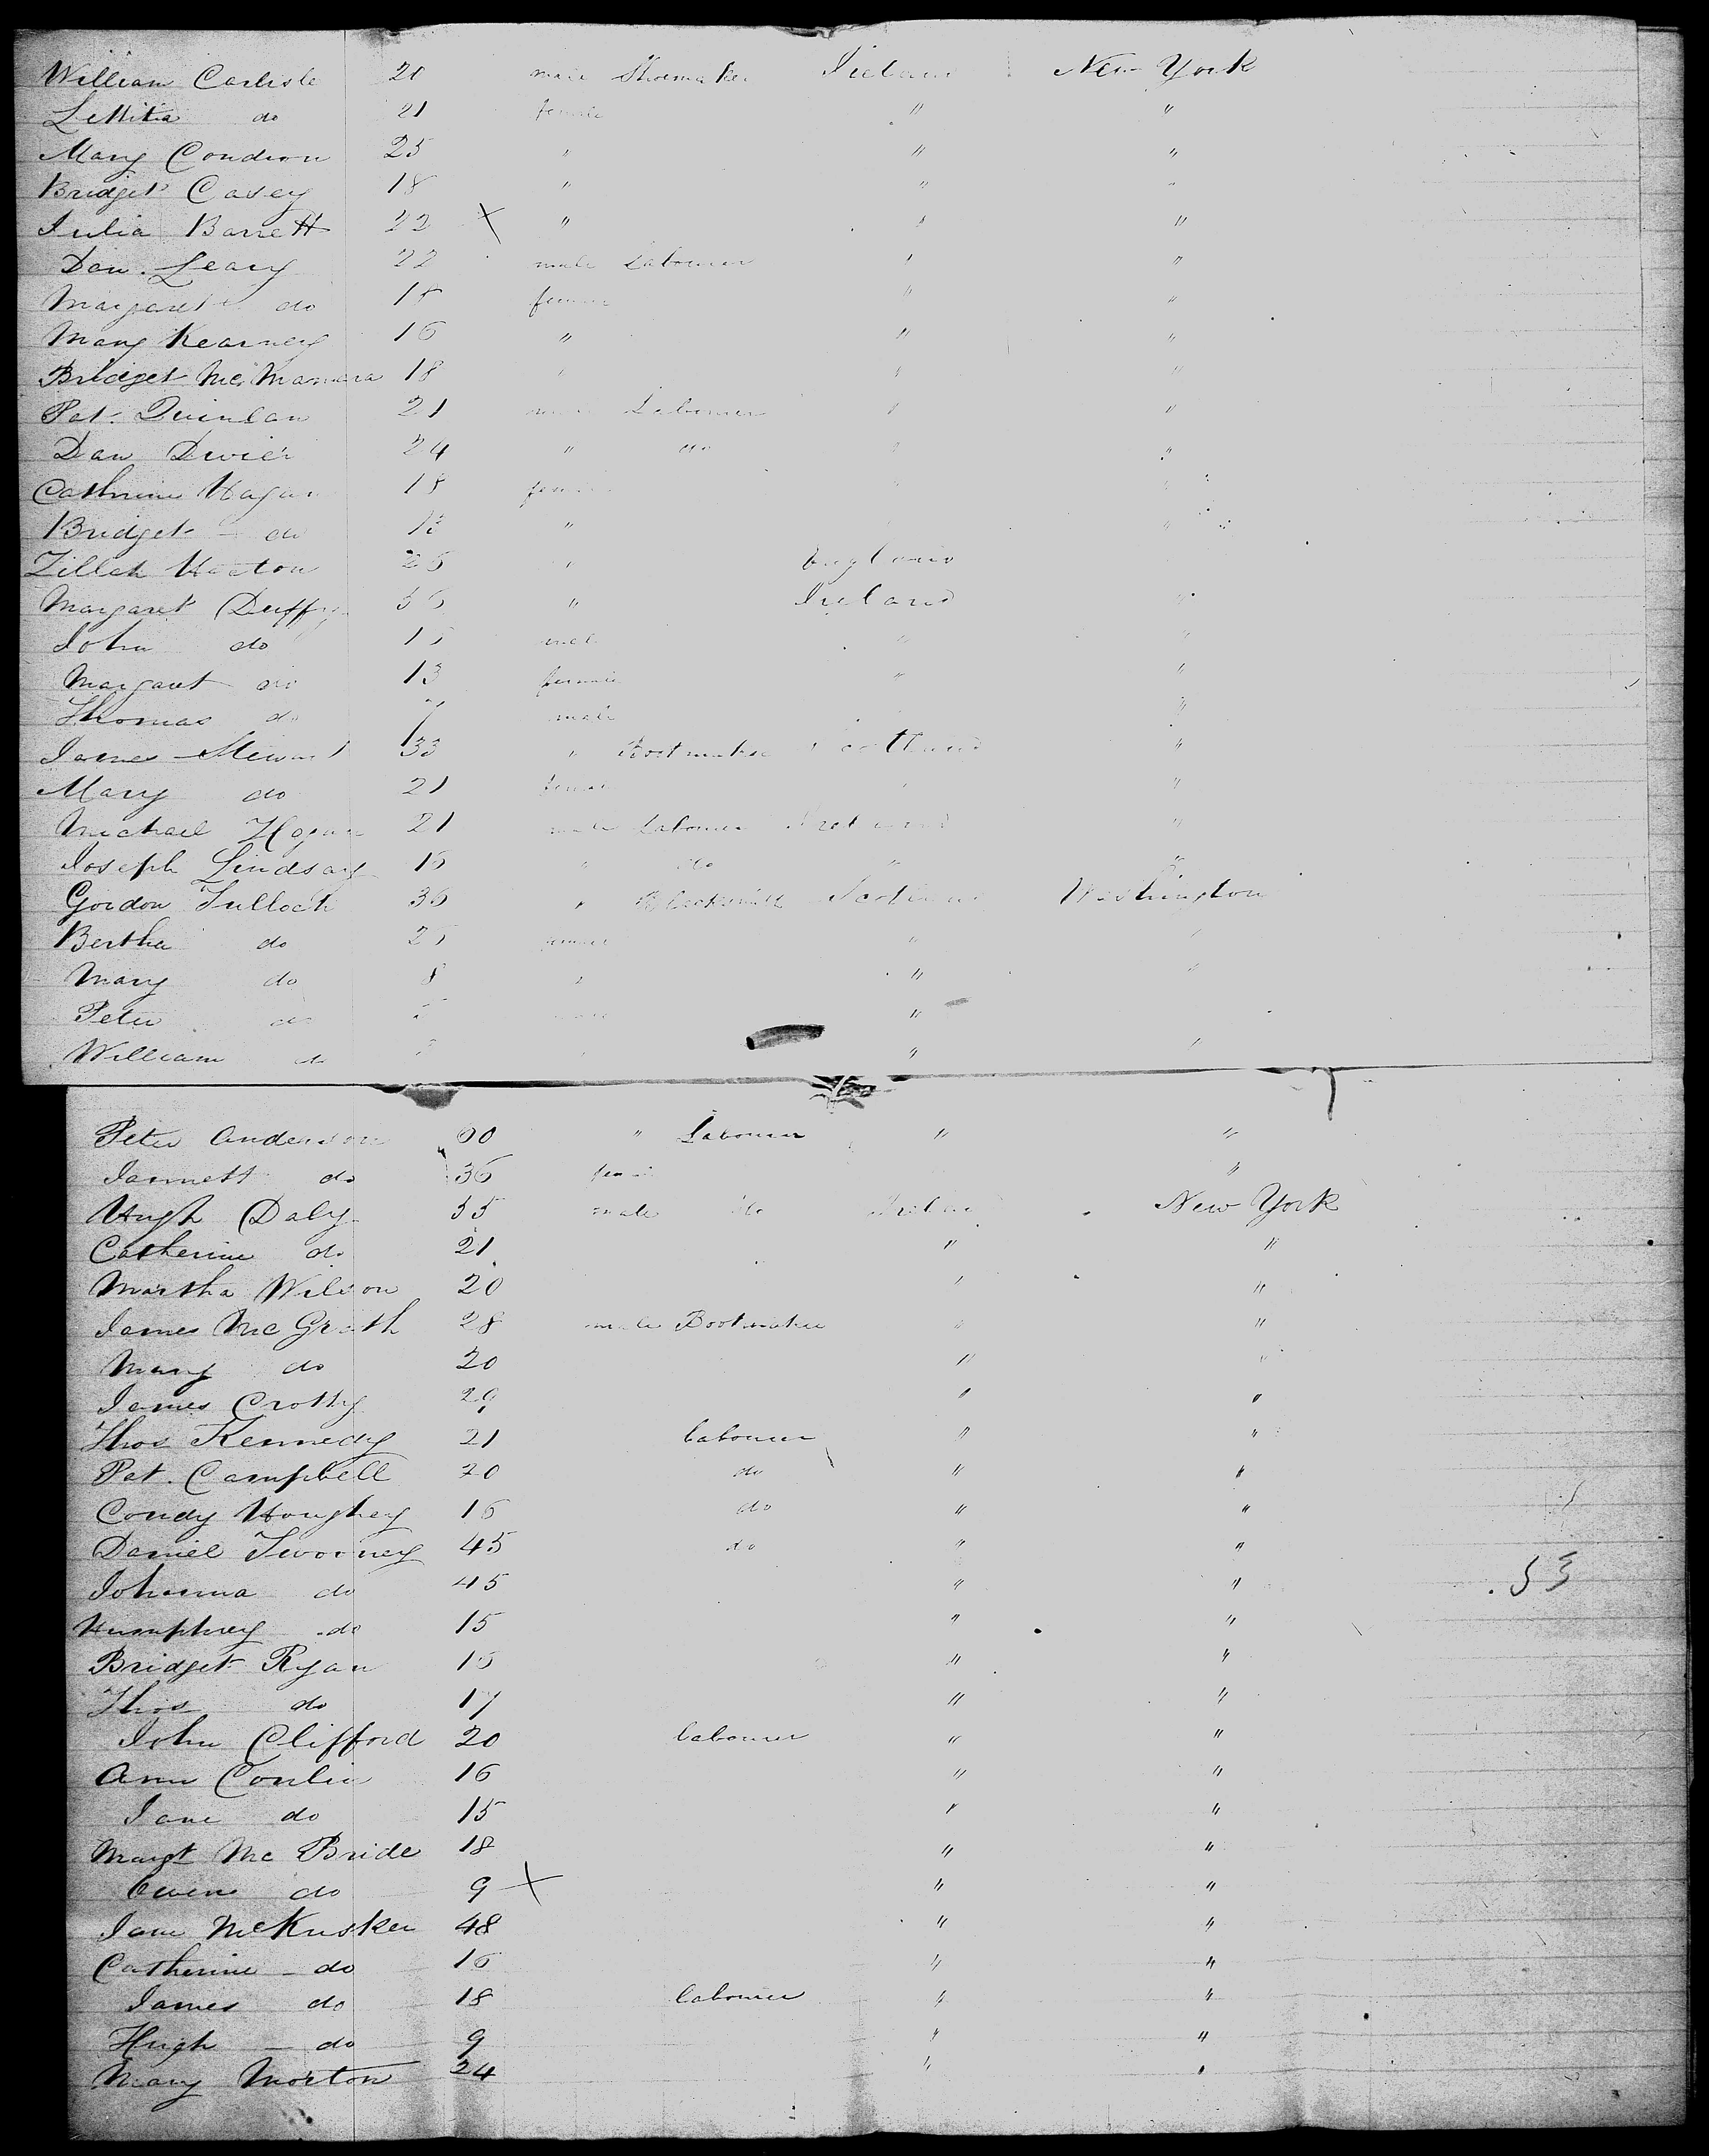 William Carlisle 20 male Shoemaker Ireland New York
Lettitia do 21 female " "
Mary Condron 25 " " "
Bridget Casey 18 " " "
Julia Barrett 22 X " " "
Dan. Leary 22 male Labourer " "
Margaret do 18 female " "
Mary Kearney 16 " " "
Bridget McMamara 18 " " "
Pat. Quinlan 21 male Labourer " "
Dan Dwier 24 " do " "
Cathrine Hagan 18 female " "
Bridget do 13 " " "
Zillah Heaton 25 " England
Margaret Duffy 36 " Ireland "
John do 15 male " "
Margaret do 13 female " "
Thomas do 7 male "
James Stewart 33 " Bootmaker Scotland "
Mary do 21 female " "
Michael Hogan 21 male Labourer Ireland "
Joseph Lindsay 16 " do " "
Gordon Tulloch 36 " Blacksmith Scotland Washington
Bertha do 25 female " "
Mary do 8 " " "
Peter do male "
William do " " "
Peter Anderson 60 " Labourer " "
Jannett do 36 female "
Hugh Daly 35 male do Ireland New York
Catherine do 21 " "
Martha Wilson 20 " "
James McGrath 28 male Bootmaker " "
Mary do 20 " "
James Crotty 29 " "
Thos Kennedy 21 Labourer " "
Pat. Campbell 20 do " "
Condy Houghey 16 do " "
Daniel Twoomey 45 do " "
Johanna do 45 " " 53
Humphrey do 15 " "
Bridget Ryan 15 " "
Thos do 17 " "
John Clifford 20 Labourer " "
Ann Conlin 16 " "
Jane do 15 " "
Margt McBride 18 " "
Owen do 9 X " "
Jane McKusker 48 " "
Catherine do 16 " "
James do 18 Labourer " "
Hugh do 9 " "
Mary Morton 24 " "